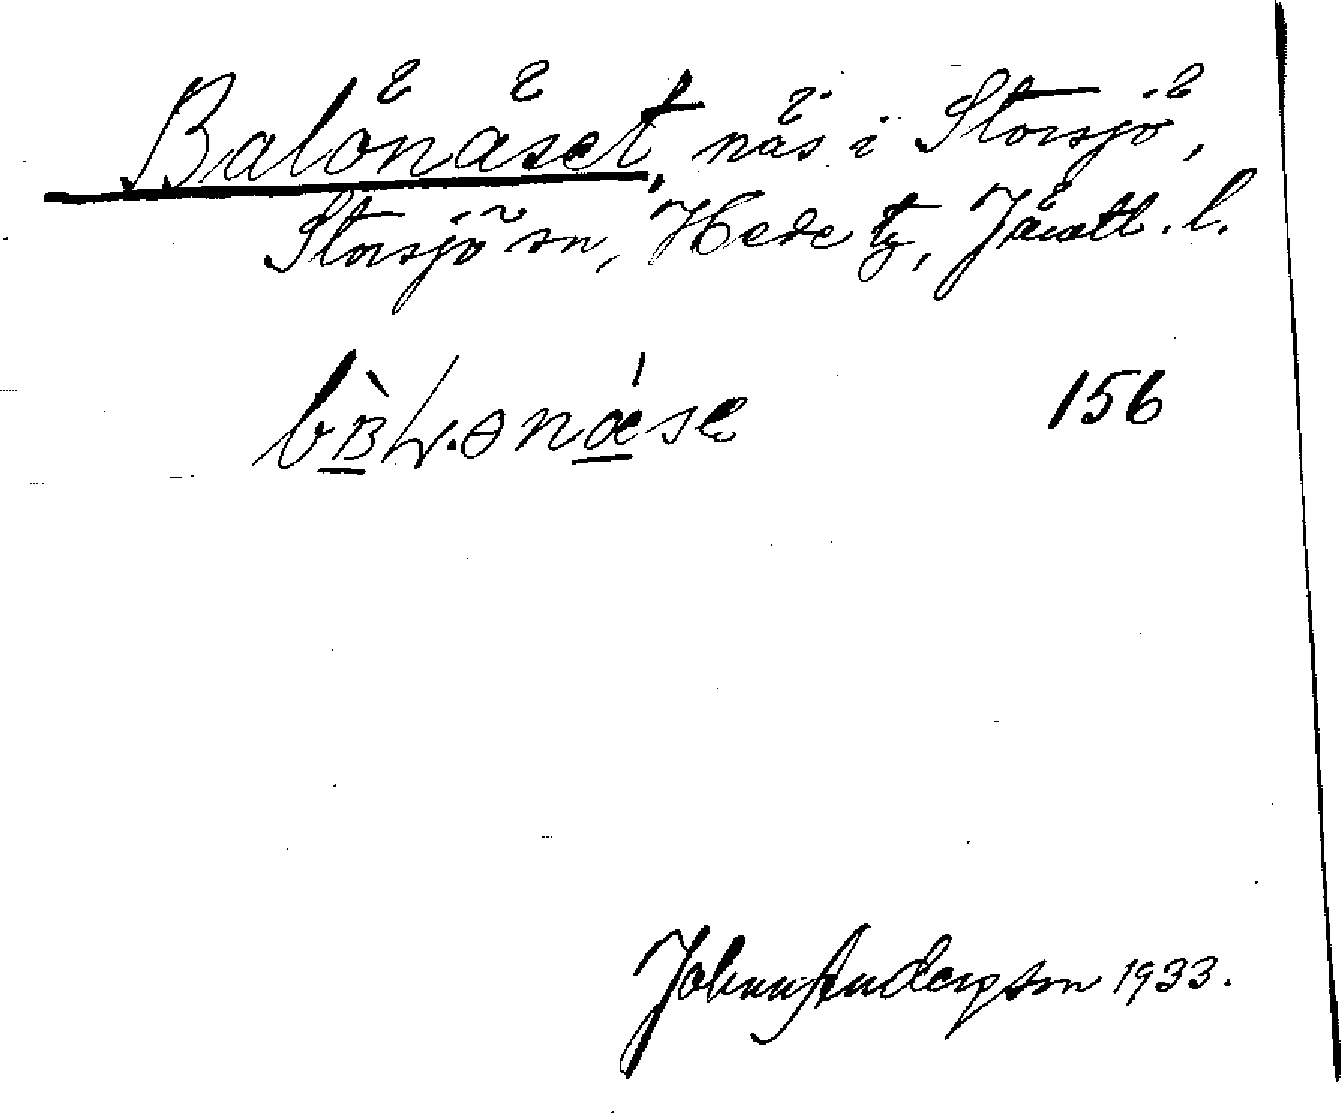 Balönäset, näs i Storsjö,
Storsjö sn, Hede tg, Jämtl. l.
156
Johan Andersson 1933.